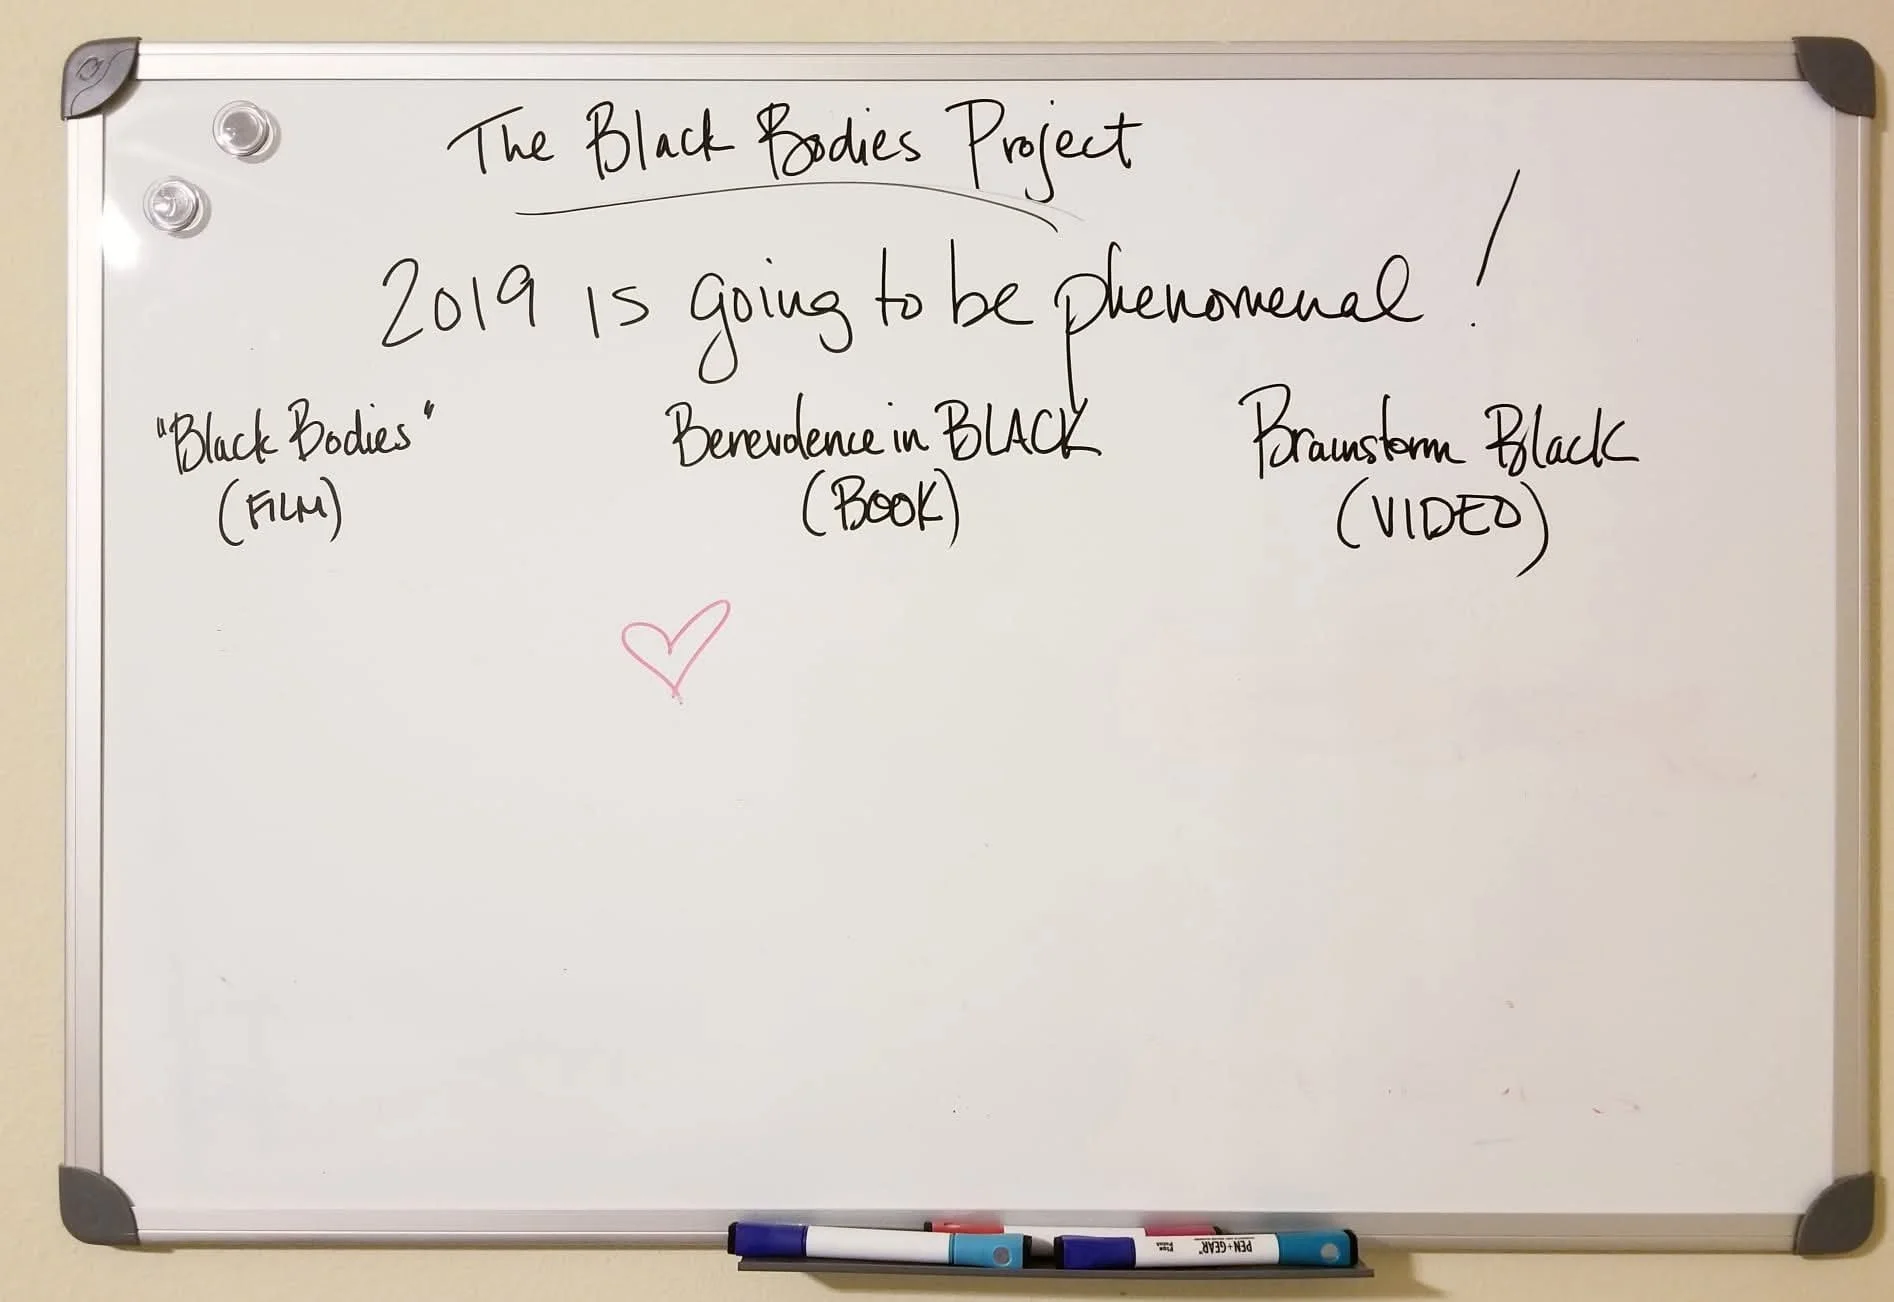 The Black Bodies Project
2019 is going to be phenomenal!
"Black Bodies"
(FILM)
Benevolence in BLACK
(BOOK)
Brainstorm Black
(VIDEO)
PEN+GEAR